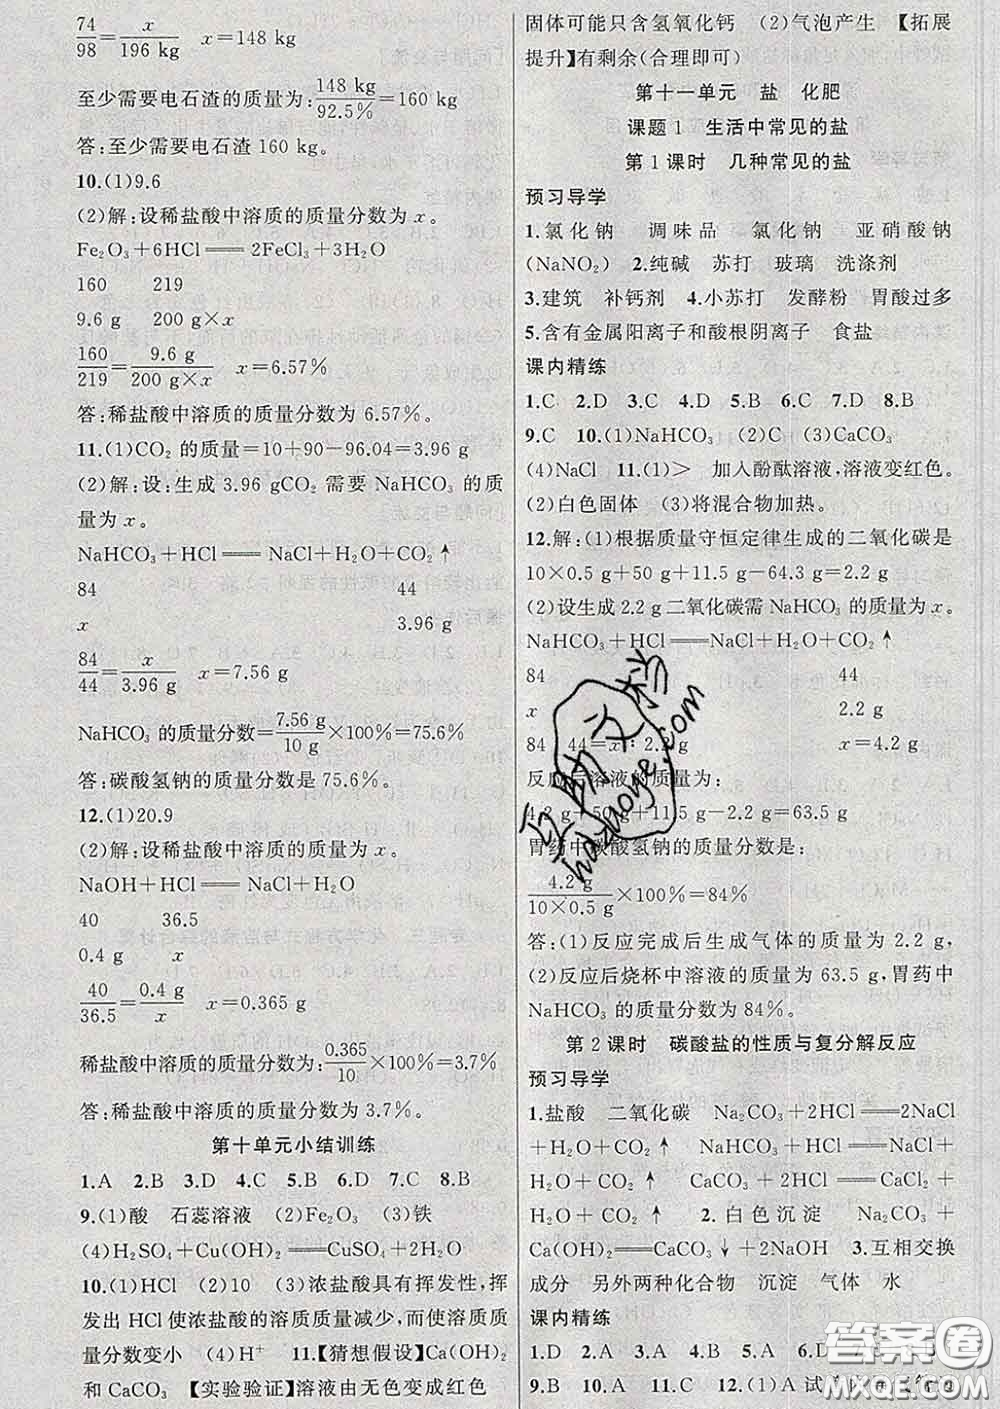 74/98=x/196 kg  x=148 kg
至少需要电石渣的质量为:148 kg/92.5%=160 kg
答:至少需要电石渣160 kg。
10.(1)9.6
(2)解:设稀盐酸中溶质的质量分数为x。
Fe₂O₃+6HCl══2FeCl₃+3H₂O
160  219
9.6 g  200 g×x
160/219=9.6 g/(200 g×x)  x=6.57%
答:稀盐酸中溶质的质量分数为6.57%。
11.(1)CO₂的质量=10+90-96.04=3.96 g
(2)解:设:生成3.96 gCO₂需要NaHCO₃的质
量为x。
NaHCO₃+HCl══NaCl+H₂O+CO₂↑
84  44
x  3.96 g
84/44=x/3.96 g  x=7.56 g
NaHCO₃的质量分数=7.56 g/10 g×100%=75.6%
答:碳酸氢钠的质量分数是75.6%。
12.(1)20.9
(2)解:设稀盐酸中溶质的质量为x。
NaOH+HCl══NaCl+H₂O
40  36.5
0.4 g  x
40/36.5=0.4 g/x  x=0.365 g
稀盐酸中溶质的质量分数为:0.365/10×100%=3.7%
答:稀盐酸中溶质的质量分数为3.7%。
第十单元小结训练
1.A 2.B 3.D 4.C 5.B 6.D 7.C 8.B
9.(1)酸 石蕊溶液 (2)Fe₂O₃ (3)铁
(4)H₂SO₄+Cu(OH)₂══CuSO₄+2H₂O
10.(1)HCl (2)10 (3)浓盐酸具有挥发性,挥
发出HCl使浓盐酸的溶质质量减少,而使溶质质
量分数变小 (4)H⁺ 11.【猜想假设】Ca(OH)₂
和CaCO₃ 【实验验证】溶液由无色变成红色
固体可能只含氢氧化钙 (2)气泡产生 【拓展
提升】有剩余(合理即可)
第十一单元 盐 化肥
课题1 生活中常见的盐
第1课时 几种常见的盐
预习导学
1.氯化钠 调味品 氯化钠 亚硝酸钠
(NaNO₂) 2.纯碱 苏打 玻璃 洗涤剂
3.建筑 补钙剂 4.小苏打 发酵粉 胃酸过多
5.含有金属阳离子和酸根阴离子 食盐
课内精练
1.C 2.D 3.C 4.D 5.B 6.C 7.D 8.B
9.C 10.(1)NaHCO₃ (2)C (3)CaCO₃
(4)NaCl 11.(1)> 加入酚酞溶液,溶液变红色。
(2)白色固体 (3)将混合物加热。
12.解:(1)根据质量守恒定律生成的二氧化碳是
10×0.5 g+50 g+11.5 g-64.3 g=2.2 g
(2)设生成2.2 g二氧化碳需NaHCO₃的质量为x。
NaHCO₃+HCl══NaCl+H₂O+CO₂↑
84  44
x  2.2 g
84:44=x:2.2 g  x=4.2 g
反应后溶液的质量为:
4.2 g+50 g+11.5 g-2.2 g=63.5 g
胃药中碳酸氢钠的质量分数是:
4.2 g/(10×0.5 g)×100%=84%
答:(1)反应完成后生成气体的质量为2.2 g,
(2)反应后烧杯中溶液的质量为63.5 g,胃药中
NaHCO₃的质量分数为84%。
第2课时 碳酸盐的性质与复分解反应
预习导学
1.盐酸 二氧化碳 Na₂CO₃+2HCl══2NaCl
+H₂O+CO₂↑ NaHCO₃+HCl══NaCl+
H₂O+CO₂↑ CaCO₃+2HCl══CaCl₂+
H₂O+CO₂↑ 2.白色沉淀 Na₂CO₃+
Ca(OH)₂══CaCO₃↓+2NaOH 3.互相交换
成分 另外两种化合物 沉淀 气体 水
课内精练
1.D 2.D 3.A 4.C 5.A 6.
9.B 10.A 11.C 12.(1)A 试
互助文档
hdzuoye.com
答案圈
MXQE.COM